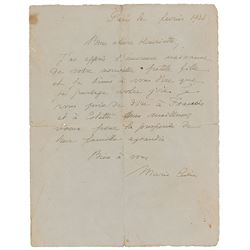 Paris le février 1934
Ma chère Henriette,
J'ai appris l'heureuse naissance
de votre nouvelle petite fille
et je tiens à vous dire que
je partage votre joie. Je
vous prie de dire à
et à Colette mes meilleurs
voeux pour la prospérité de
leur famille agrandie
Bien à vous
Marie Curie